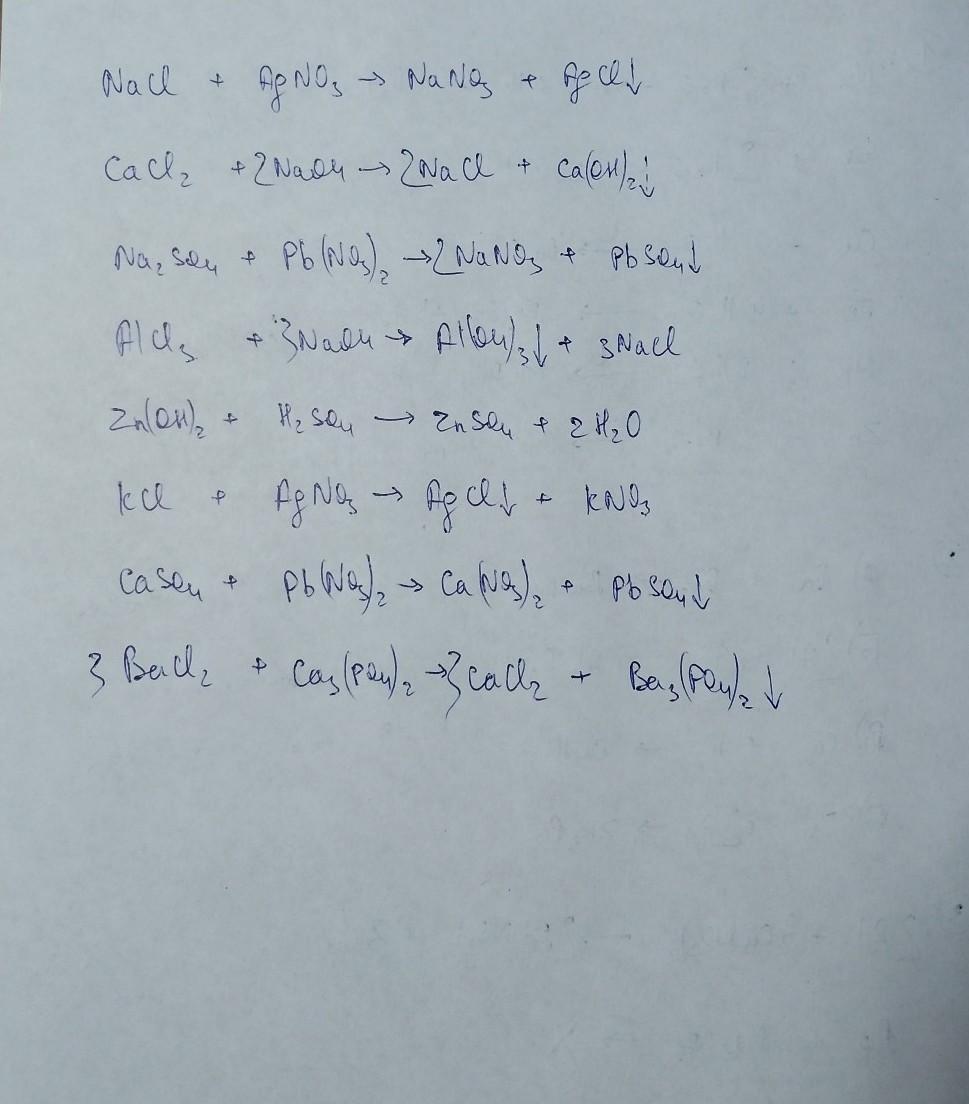 NaCl + AgNO₃ → NaNO₃ + AgCl↓
CaCl₂ + 2NaOH → 2NaCl + Ca(OH)₂↓
Na₂SO₄ + Pb(NO₃)₂ → 2NaNO₃ + PbSO₄↓
AlCl₃ + 3NaOH → Al(OH)₃↓ + 3NaCl
Zn(OH)₂ + H₂SO₄ → ZnSO₄ + 2H₂O
KCl + AgNO₃ → AgCl↓ + KNO₃
CaSO₄ + Pb(NO₃)₂ → Ca(NO₃)₂ + PbSO₄↓
3BaCl₂ + Ca₃(PO₄)₂ → 3CaCl₂ + Ba₃(PO₄)₂↓